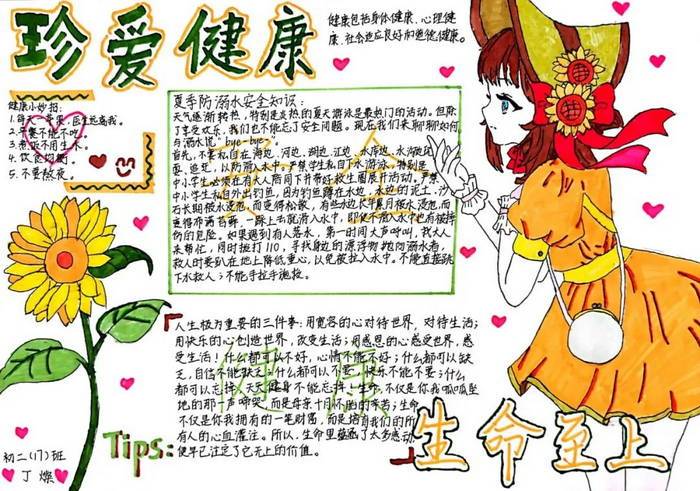 珍爱健康
健康包括身体健康、心理健
康、社会适应良好和道德健康。
健康小妙招:
1.每天一苹果,医生远离我。
2.早餐不能不吃。
3.煮饭不用生水。
4.饮食均衡。
5.不要熬夜。
夏季防溺水安全知识:
天气逐渐转热,特别是炎热的夏天游泳是最热门的活动。但除
了享受欢乐,我们也不能忘了安全问题。现在我们来聊聊如何
与溺水说"bye-bye"
首先,不要私自在海边、河边、湖边、江边、水库边、水沟边玩
耍、追赶,以防滑入水中。严禁学生私自下水游泳。特别是
中小学生必须在有大人陪同下并带好救生圈展开活动。严禁
中小学生私自外出钓鱼,因为钓鱼蹲在水边,水边的泥土、沙
石长期被水浸泡,而变得松散,有些水边长年累月被水浸泡,而
重得布满苔藓,一踩上去就滑入水中,即使不滑入水中也有被摔
倒的危险。如果遇到有人落水,第一时间大声呼叫,找大人
来帮忙,同时拨打110,寻找身边的漂浮物抛向溺水者,
救人时要趴在地上降低重心,以免被拉入水中。不能直接跳
下水救人;不能手拉手施救。
人生极为重要的三件事:用宽容的心对待世界,对待生活;
用快乐的心创造世界,改变生活;用感恩的心感受世界,感
受生活!什么都可以不好,心情不能不好;什么都可以缺
乏,自信不能缺乏;什么都可以不要,快乐不能不要;什么
都可以忘掉,天天健身不能忘掉!生命,不仅是你我呱呱坠
地的那一声啼哭,而是母亲十月怀胎的辛苦;生命
不仅是你我拥有的一笔财富,而是培育我们的所
有人的心血灌注。所以,生命里蕴涵了太多感动
便早已注定了它无上的价值。
健康
Tips:
生命至上
初二(17)班
丁燦